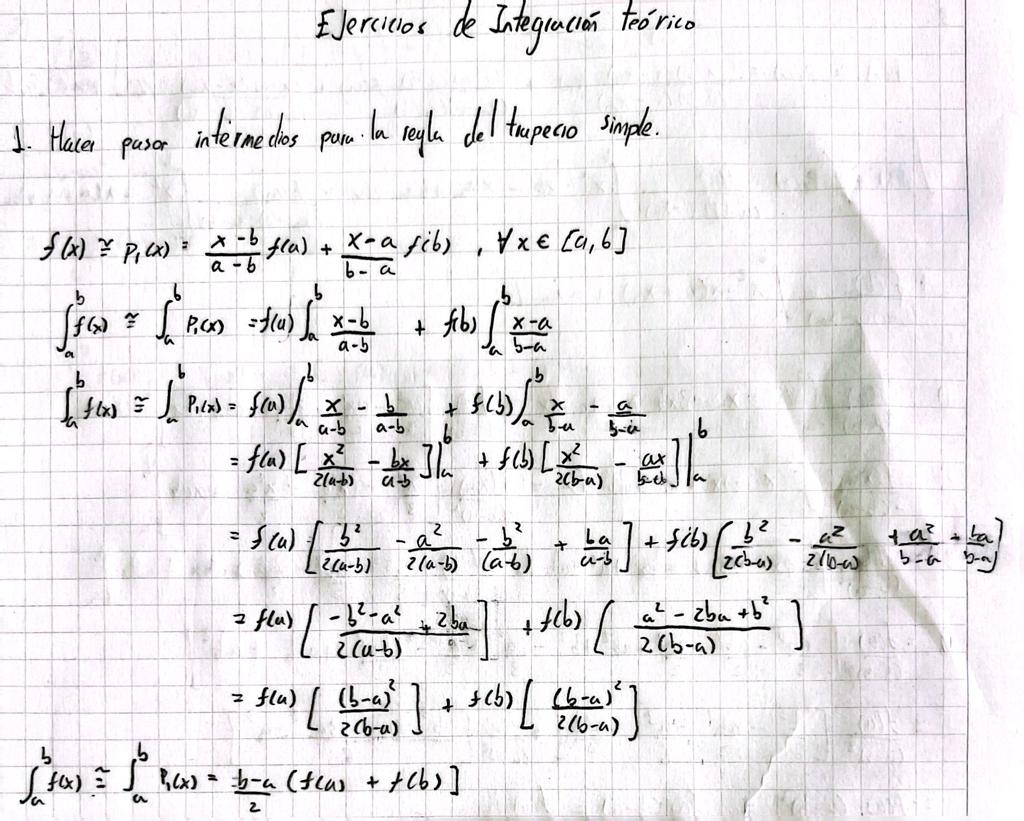 Ejercicios de Integración teórico
1. Hacer pasos intermedios para la regla del trapecio simple.
f(x) ≅ P₁(x) = \frac{x-b}{a-b} f(a) + \frac{x-a}{b-a} f(b) , ∀ x ∈ [a,b]
∫_a^b f(x) ≅ ∫_a^b P₁(x) = f(a) ∫_a^b \frac{x-b}{a-b} + f(b) ∫_a^b \frac{x-a}{b-a}
∫_a^b f(x) ≅ ∫_a^b P₁(x) = f(a) ∫_a^b \frac{x}{a-b} - \frac{b}{a-b} + f(b) ∫_a^b \frac{x}{b-a} - \frac{a}{b-a}
= f(a) [ \frac{x²}{2(a-b)} - \frac{bx}{a-b} ]|_a^b + f(b) [ \frac{x²}{2(b-a)} - \frac{ax}{b-a} ]|_a^b
= f(a) [ \frac{b²}{2(a-b)} - \frac{a²}{2(a-b)} - \frac{b²}{(a-b)} + \frac{ba}{a-b} ] + f(b) [ \frac{b²}{2(b-a)} - \frac{a²}{2(b-a)} + \frac{a²}{b-a} - \frac{ba}{b-a} ]
= f(a) [ \frac{-b²-a²+2ba}{2(a-b)} ] + f(b) [ \frac{a²-2ba+b²}{2(b-a)} ]
= f(a) [ \frac{(b-a)²}{2(b-a)} ] + f(b) [ \frac{(b-a)²}{2(b-a)} ]
∫_a^b f(x) ≅ ∫_a^b P₁(x) = \frac{b-a}{2} (f(a) + f(b)]